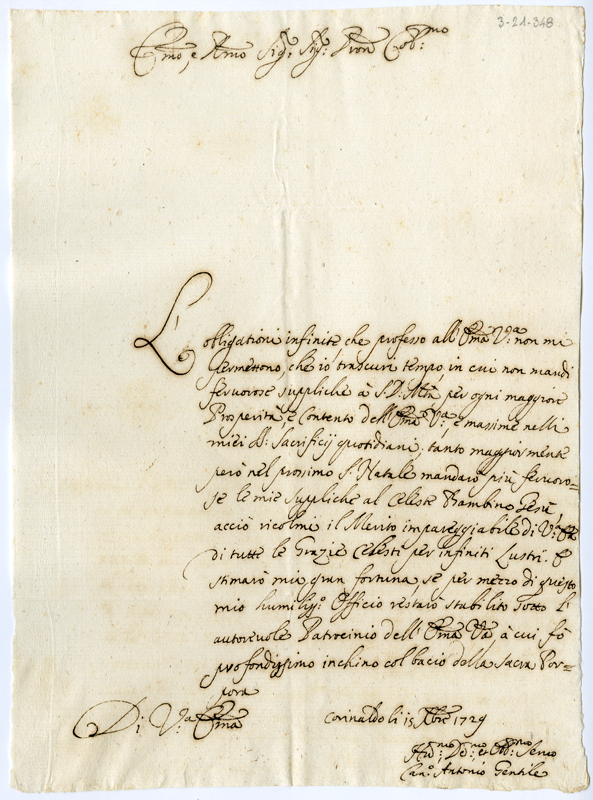 3-21-348
Emo, e Rmo Sig:r Sig:r Pron Col:mo
L'obligationi infinite che professo all'Ema V:a non mi
permettono, che io trascuri tempo in cui non mandi
fervorose suppliche à S. D. Mtà per ogni maggiore
Prosperità e Contento dell'Ema V:a, e massime nelli
miei SS: Sacrificij quotidiani; tanto maggiormente
però nel prossimo S. Natale mandarò più fervoro=
se le mie suppliche al Celeste Bambino Gesù
acciò ricolmi il Merito impareggiabile di V:a Ema
di tutte le Grazie Celesti per infiniti Lustri. E
stimarò mia gran fortuna, se per mezzo di questo
mio humiliss:o Officio restarò stabilito sotto l'
autorevole Patrocinio dell'Ema Va, à cui fò
profondissimo inchino col bacio della Sacra Por=
pora
Di V:a Ema
Corinaldo li 15 Xbre 1729
Hu:mo, De:mo, et Ob:mo Servo
Can:o Antonio Gentile